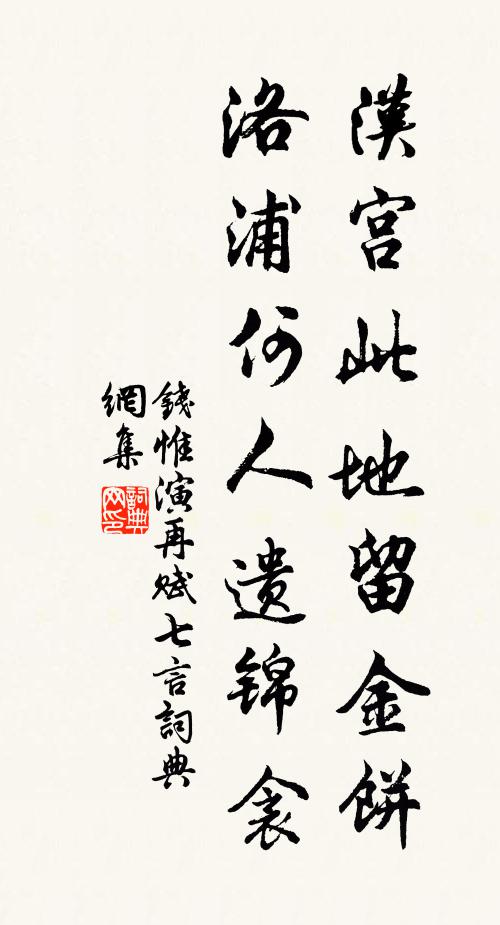 漢宮此地留金餅
洛浦何人遺錦衾
錢惟演再賦七言詞典
網集
詞典
网印